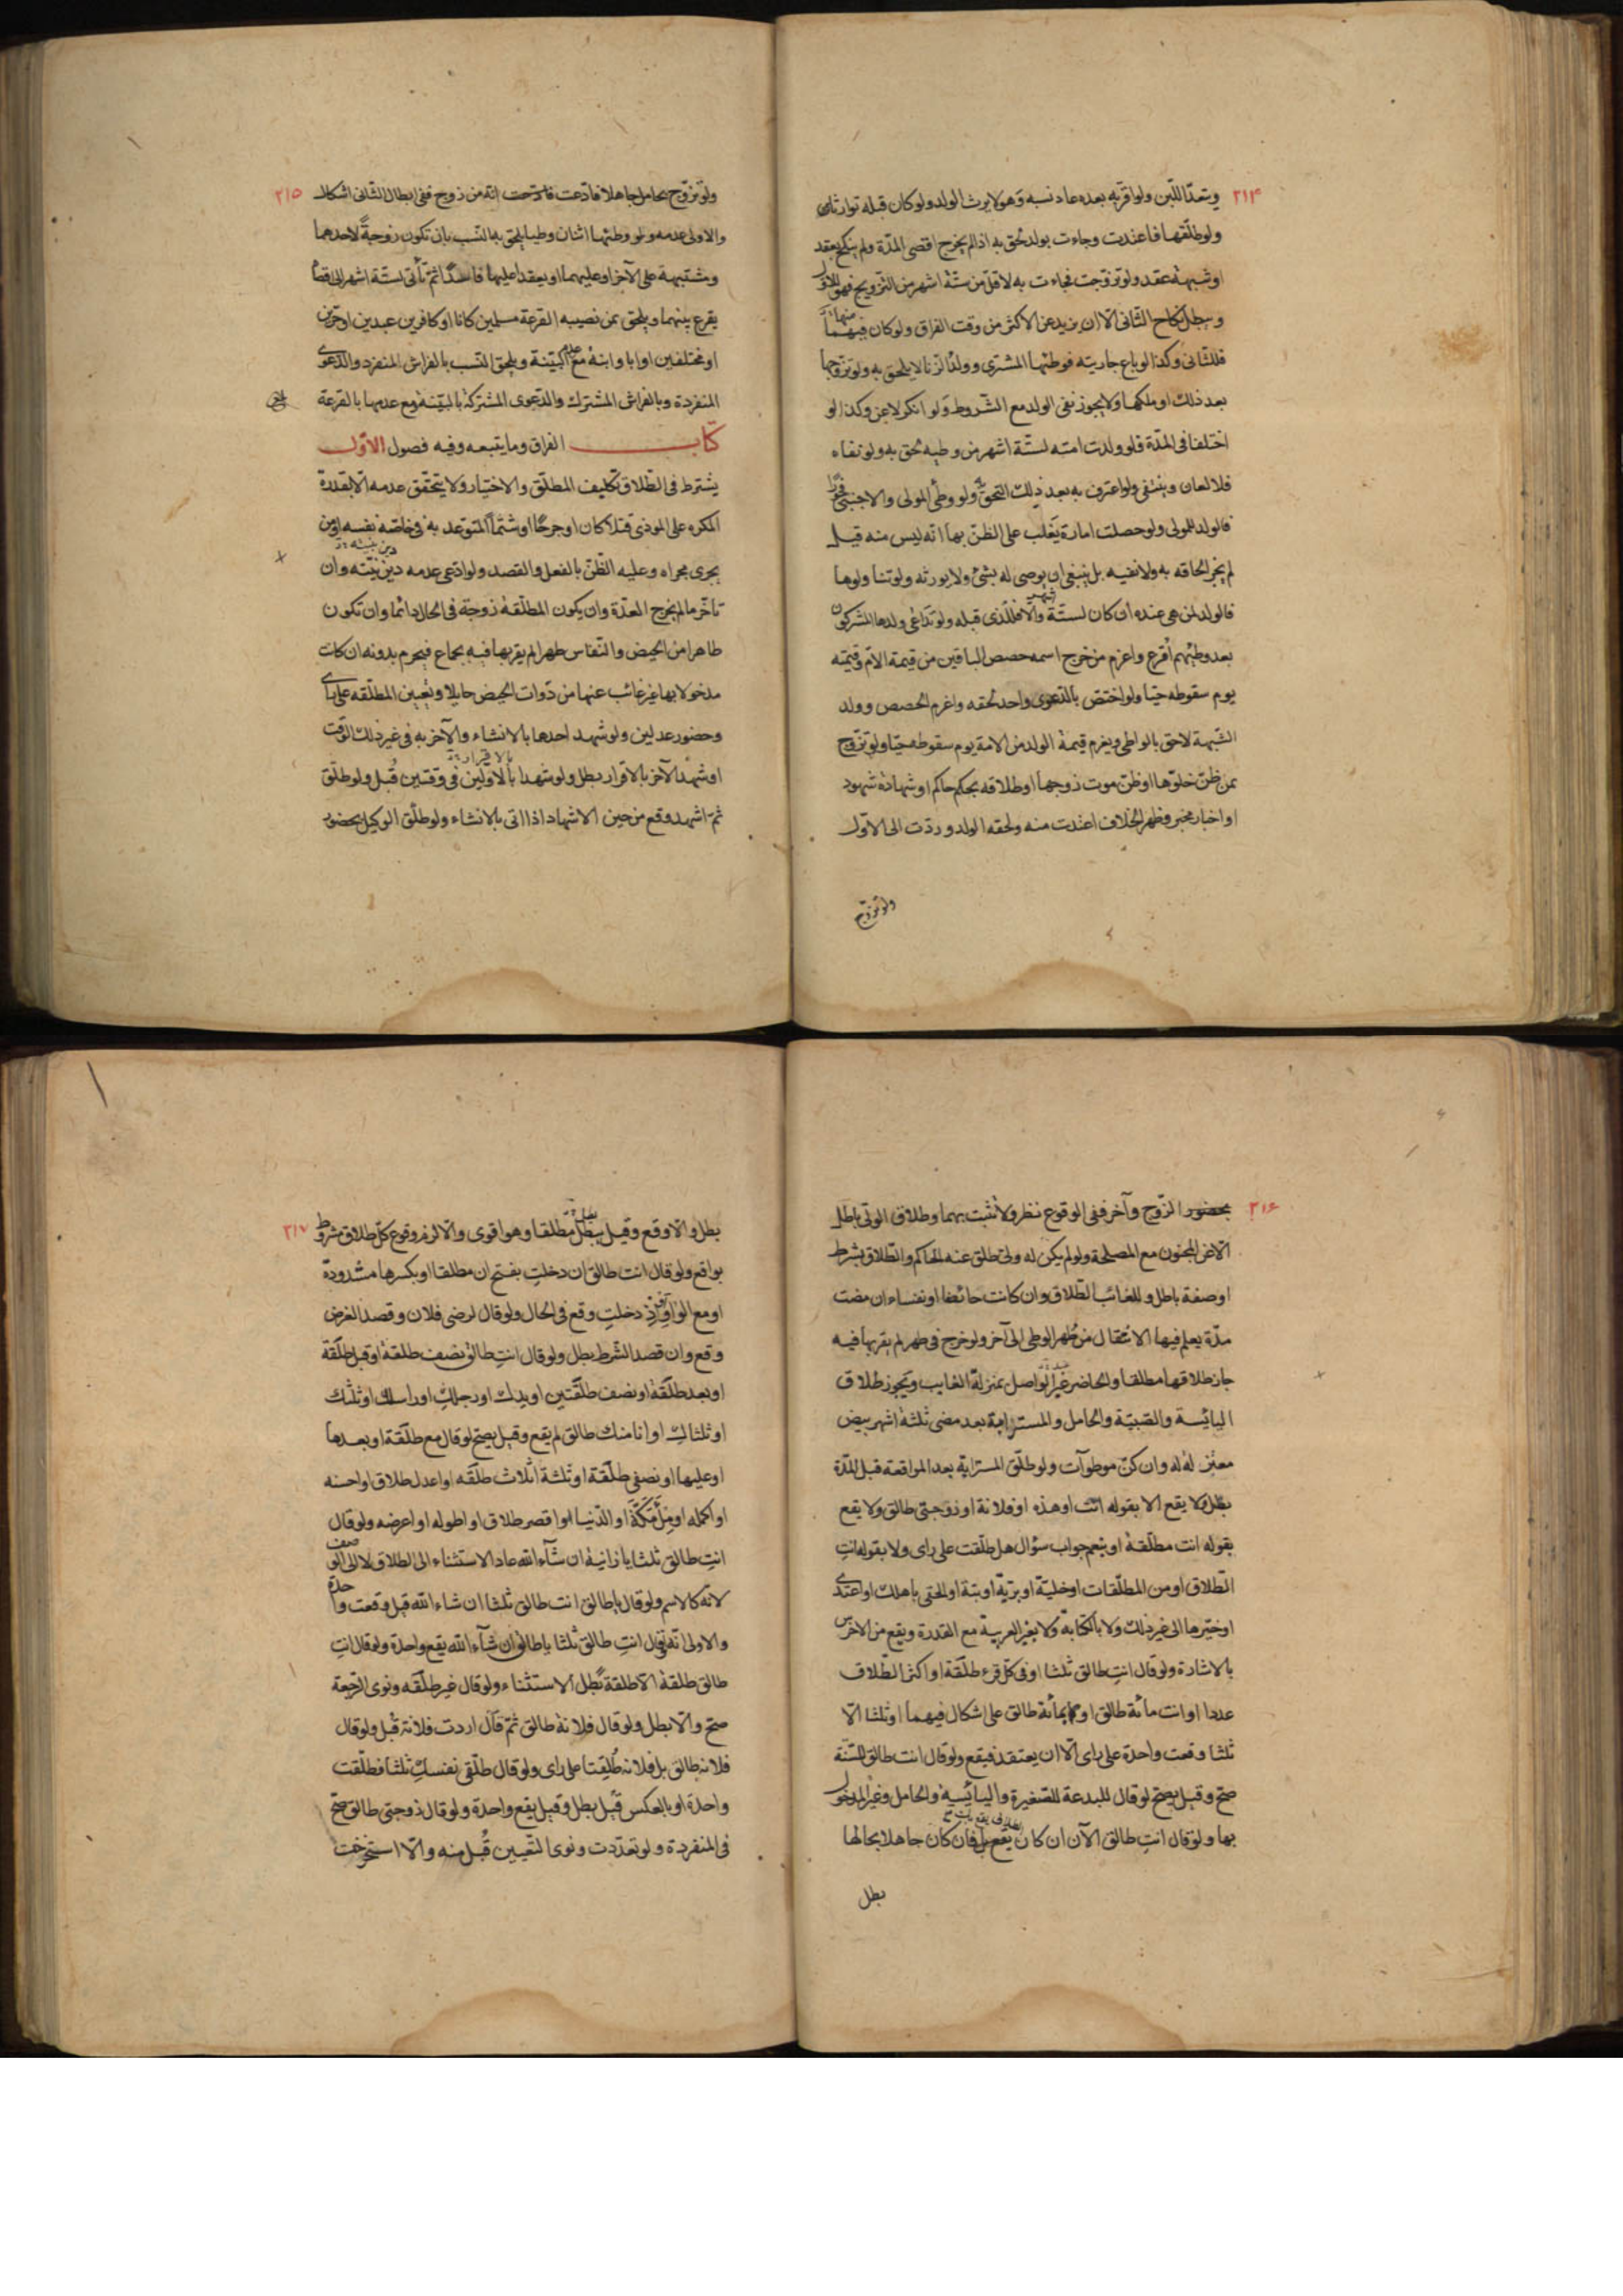 ٢١٤
وتعدّا للّبن ولو اقرّ به بعده عاد نسبه وهو لا يرث الولد ولو كان قبله توارثا
ولو طلّقها فاعتدت وجاءت بولد لحق به اذا لم يخرج اقصى المدّة ولم ينكح بعقد
او شبهة عقد ولو تزوّجت فجاءت به لاقلّ من ستّة اشهر من التزويج فهو للاوّل
وبطل نكاح الثانى الا ان يزيد عن الاكثر من وقت الفراق ولو كان فيهما
فللثانى وكذا لو باع جاريته فوطئها المشترى وولد الزنا لا يلحق به ولو تزوجها
بعد ذلك او ملكها ولا يجوز نفى الولد مع الشّروط ولو انكر لاعن وكذا لو
اختلفا فى المدّة فلو ولدت امته لستّة اشهر من وطيه لحق به ولو نفاه
فلا لعان وينتفى ولو اعترف به بعد ذلك التحق ولو وطئ المولى والاجنبى فجورا
فالولد للمولى ولو حصلت امارة يغلب على الظنّ بها انّه ليس منه قيل
لم يجز الحاقه به ولا نفيه بل ينبغى ان يوصى له بشئ ولا يورثه ولو تناولوها
فالولد لمن هى عنده ان كان لستّة اشهر والّا فللذى قبله ولو تداعى ولدها المشتركون
بعد وطئهم اقرع واغرم من خرج اسمه حصص الباقين من قيمة الامّ وقيمته
يوم سقوطه حيّا ولو اختصّ بالدّعوى واحد لحقه واغرم الحصص وولد
الشّبهة لاحق بالواطى ويغرم قيمة الولد من الامة يوم سقوطه حيّا ولو تزوّج
بمن ظنّ خلوّها او ظنّ موت زوجها او طلاقه بحكم حاكم او شهادة شهود
او اخبار مخبر فظهر الخلاف اعتدت منه ولحقه الولد وردّت الى الاوّل
ولو تزوّج
٢١٥
ولو تزوّج بحامل جاهلا فادّعت انّه من زوج ففى ابطال الثّانى اشكال
والاولى عدمه ولو وطئها اثنان وطيا يلحق به النّسب بان تكون زوجةً لاحدهما
ومشتبهة على الآخر او عليهما او يعقدا عليها فاسدًا ثمّ تأتى لستّة اشهر الى اقصا
يقرع بينهما ويلحق بمن نصيبه القرعة مسلمين كانا او كافرين عبدين او حرّين
او مختلفين او ابا وابنه مع عدم البيّنة ويلحق النّسب بالفراش المنفرد والدّعوى
المنفردة وبالفراش المشترك والدّعوى المشتركة بالبيّنة ومع عدمها بالقرعة
كتاب الفراق وما يتبعه وفيه فصول الاوّل
يشترط فى الطّلاق تكليف المطلّق والاختيار ولا يتحقق عدمه الا بقدرة
المكره على الموذى قتلا كان او جرحًا او شتمًا المتوعد به فى خاصّة نفسه او من
يجرى مجراه وعليه الظّنّ بالفعل والقصد ولو ادّعى عدمه ديّن بنيّته وان
تأخّر ما لم يخرج العدّة وان يكون المطلّقة زوجة فى الحال دائما وان تكون
طاهرا من الحيض والنّفاس طهرا لم يقربها فيه بجماع فيحرم بدونه ان كانت
مدخولا بها غير غائب عنها من ذوات الحيض حايلا وتعيين المطلّقه على راى
وحضور عدلين ولو شهد احدها بالانشاء والآخر به فى غير ذلك الوقت
او شهد الآخر بالاقرار بطل ولو شهدا بالاوّلين فى وقتين قُبل ولو طلّق
ثمّ اشهد وقع من حين الاشهاد اذا اتى بالانشاء ولو طلّق الوكيل بحضور
٢١٦
بحضور الزّوج وآخر ففى الوقوع نظر ولا تثبت بهما وطلاق الولى باطل
الّا عن المجنون مع المصلحة ولو لم يكن له ولى طلق عنه الحاكم والطّلاق بشرط
او صفة باطل وللغائب الطّلاق وان كانت حائضا او نفساء ان مضت
مدّة يعلم فيها الانتقال من طُهر الوطى الى آخر ولو خرج فى طهر لم يقربها فيه
جاز طلاقها مطلقا والحاضر غير الواصل بمنزلة الغايب ويجوز طلاق
اليائسة والصّبيّة والحامل والمسترابة بعد مضى ثلثة اشهر بيض
معتزله له وان كنّ موطوآت ولو طلّق المسترابة بعد المواقعة قبل المدّة
بطل ولا يقع الا بقوله انت او هذه او فلانة او زوجتى طالق ولا يقع
بقوله انت مطلّقة او بنعم جواب سؤال هل طلّقت على راى ولا بقوله انتِ
الطّلاق او من المطلّقات او خليّة او بريّة او بتة او الحقى باهلك او اعتدى
او خيّرها الى غير ذلك ولا بالكتابة ولا بغير العربية مع القدرة ويقع من الاخرس
بالاشارة ولو قال انتِ طالق ثلثا او فى كلّ قرء طلّقة او اكثر الطّلاق
عددا او انت مائة طالق او بمائة طالق على اشكال فيهما او ثلثا الّا
ثلثا وقعت واحدة على راى الّا ان يعتقد فيقع ولو قال انت طالق للسّنّة
صحّ وقيل يصحّ لو قال للبدعة للصّغيرة واليائسة والحامل وغير المدخول
بها ولو قال انتِ طالق الآن ان كان يقع بل فان كان جاهلا بحالها
بطل
٢١٧
بطل والّا وقع وقيل يبطل مطلقا وهو اقوى والّا لزم وقوع كلّ طلاق مشروط
بواقع ولو قال انت طالق ان دخلتِ بفتح ان مطلقا او بكسرها مشدودة
او مع الواو او اذ دخلتِ وقع فى الحال ولو قال لرضى فلان وقصد الغرض
وقع وان قصد الشّرط بطل ولو قال انتِ طالق نصف طلقة او قبل طلّقة
او بعد طلّقة او نصف طلّقتين او يدك او رجلك او راسك او ثلثك
او ثلثاك او انا منك طالق لم يقع وقيل يصحّ لو قال مع طلّقة او بعدها
او عليها او نصفى طلّقة او ثلثة اثلاث طلّقه او اعدل طلاق او احسنه
او اكمله او مِلْءَ مَكّة او الدّنيا او اقصر طلاق او اطوله او اعرضه ولو قال
انتِ طالق ثلثا يا زانية ان شآء الله عاد الاستثناء الى الطلاق لا الى الوصف
لانّه كالاسم ولو قال يا طالق انت طالق ثلثا ان شاء الله قيل وقعت واحدة
والاولى انّه ان قال انتِ طالق ثلثا يا طالق ان شآء الله يقع واحدة ولو قال انتِ
طالق طلقة الّا طلقة بطل الاستثناء ولو قال غير طلّقه ونوى الرّجعة
صحّ والّا بطل ولو قال فلانة طالق ثمّ قال اردت فلانة قُبل ولو قال
فلانة طالق بل فلانة طُلِقتا على راى ولو قال طلّقى نفسكِ ثلثا فطلّقت
واحدة او بالعكس قيل بطل وقيل يقع واحدة ولو قال زوجتى طالق صحّ
فى المنفردة ولو تعدّدت ونوى التّعيين قُبل منه والّا استخرجت